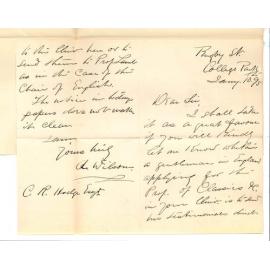 Rugby Rd
College Park
Jany. 10.
Dear Sir,
I shall take
it as a great favour
if you will kindly
let me know whether
a gentleman in England
applying for the
Prof. of Classics &c.
in your Univ. is to send
his testimonials direct
to the Univ. here or to
send them to Prof.
as in the case of the
Chair of English.
The notice in today's
papers does not make
it clear.
I am,
Yours truly
Wilson.
C. R. Hodge Esqr